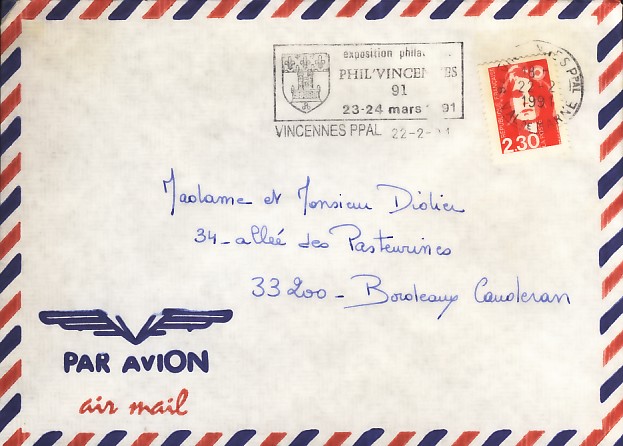 exposition
PHIL'VINCENNES
91
23-24 mars 1991
VINCENNES PPAL 22-2-91
22-2
1991
2,30
Madame et Monsieur Didier
34 - allée des Pasteurines
33200 - Bordeaux Cauderan
PAR AVION
air mail